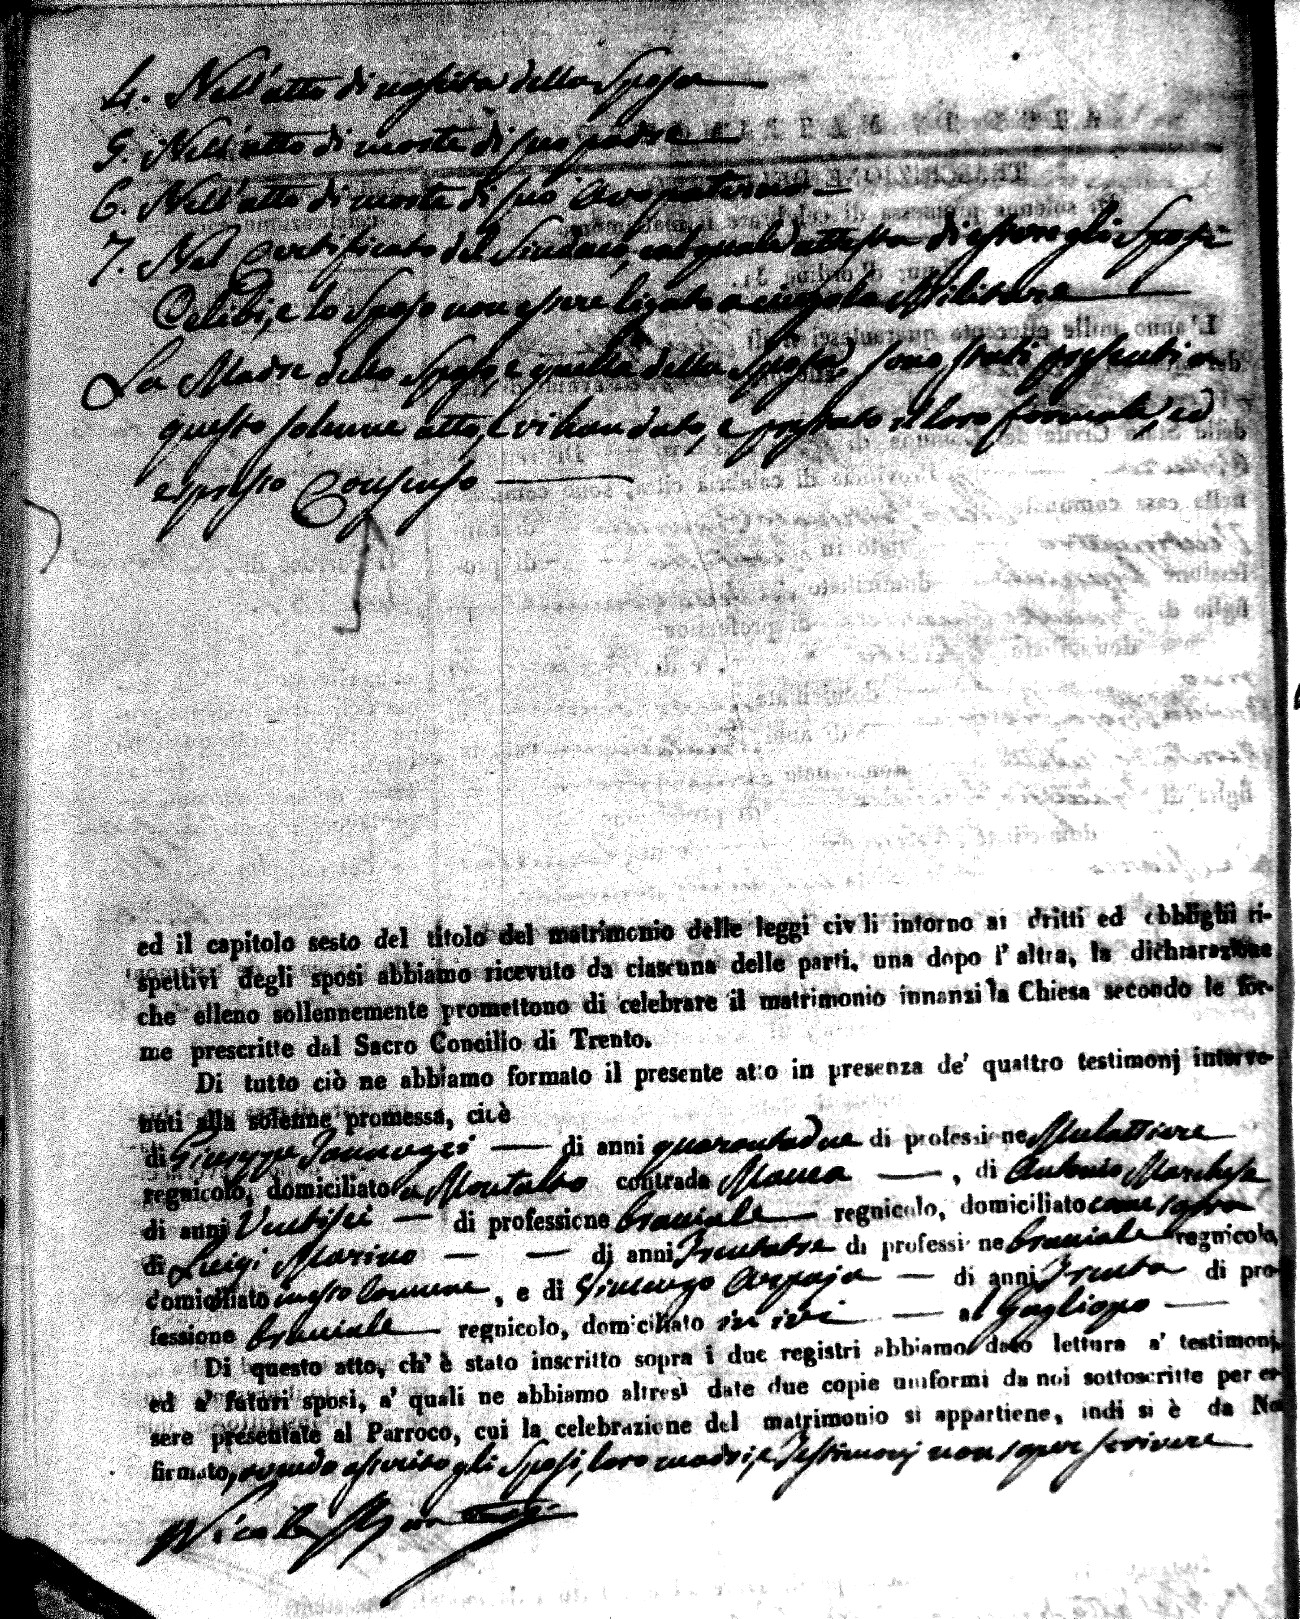 4. Nell'atto di nascita della Sposa
5. Nell'atto di morte di suo padre
6. Nell'atto di morte di suo avo paterno
7. Nel Certificato del Sindaco, col quale attesta di essere gli Sposi
Celibi, e lo Sposo non essere legato a Militare
La Madre dello Sposo, e quella della Sposa, sono stati presenti a
questo solenne atto, e vi han dato, e prestato il loro formale, ed
espresso Consenso
ed il capitolo sesto del titolo del matrimonio delle leggi civ li intorno ai dritti ed obblighi ri-
spettivi degli sposi abbiamo ricevuto da ciascuna delle parti, una dopo l' altra, la dichiarazione
che elleno sollennemente promettono di celebrare il matrimonio innansi la Chiesa secondo le for-
me prescritte dal Sacro Concilio di Trento.
Di tutto ciò ne abbiamo formato il presente atto in presenza de' quattro testimonj interve-
nuti alla solenne promessa, cioè
di Giuseppe Iannuzzi — di anni quarantadue di professione Mulattiere
regnicolo, domiciliato a Montalto contrada —, di Antonio Marchese
di anni Ventisei — di professione bracciale — regnicolo, domiciliato come sopra
di Luigi Marino — — di anni Trentatre di professione bracciale regnicolo,
domiciliato in esso Comune, e di — di anni Trenta di pro-
fessione bracciale — regnicolo, domiciliato in ivi —
Di questo atto, ch' è stato inscritto sopra i due registri abbiamo dato lettura a' testimonj,
ed a' futuri sposi, a' quali ne abbiamo altresì date due copie uniformi da noi sottoscritte per es-
sere presentate al Parroco, cui la celebrazione del matrimonio si appartiene, indi si è da Noi
firmato, avendo asserito gli Sposi, loro madri, e Testimonj non saper scrivere
Nicola